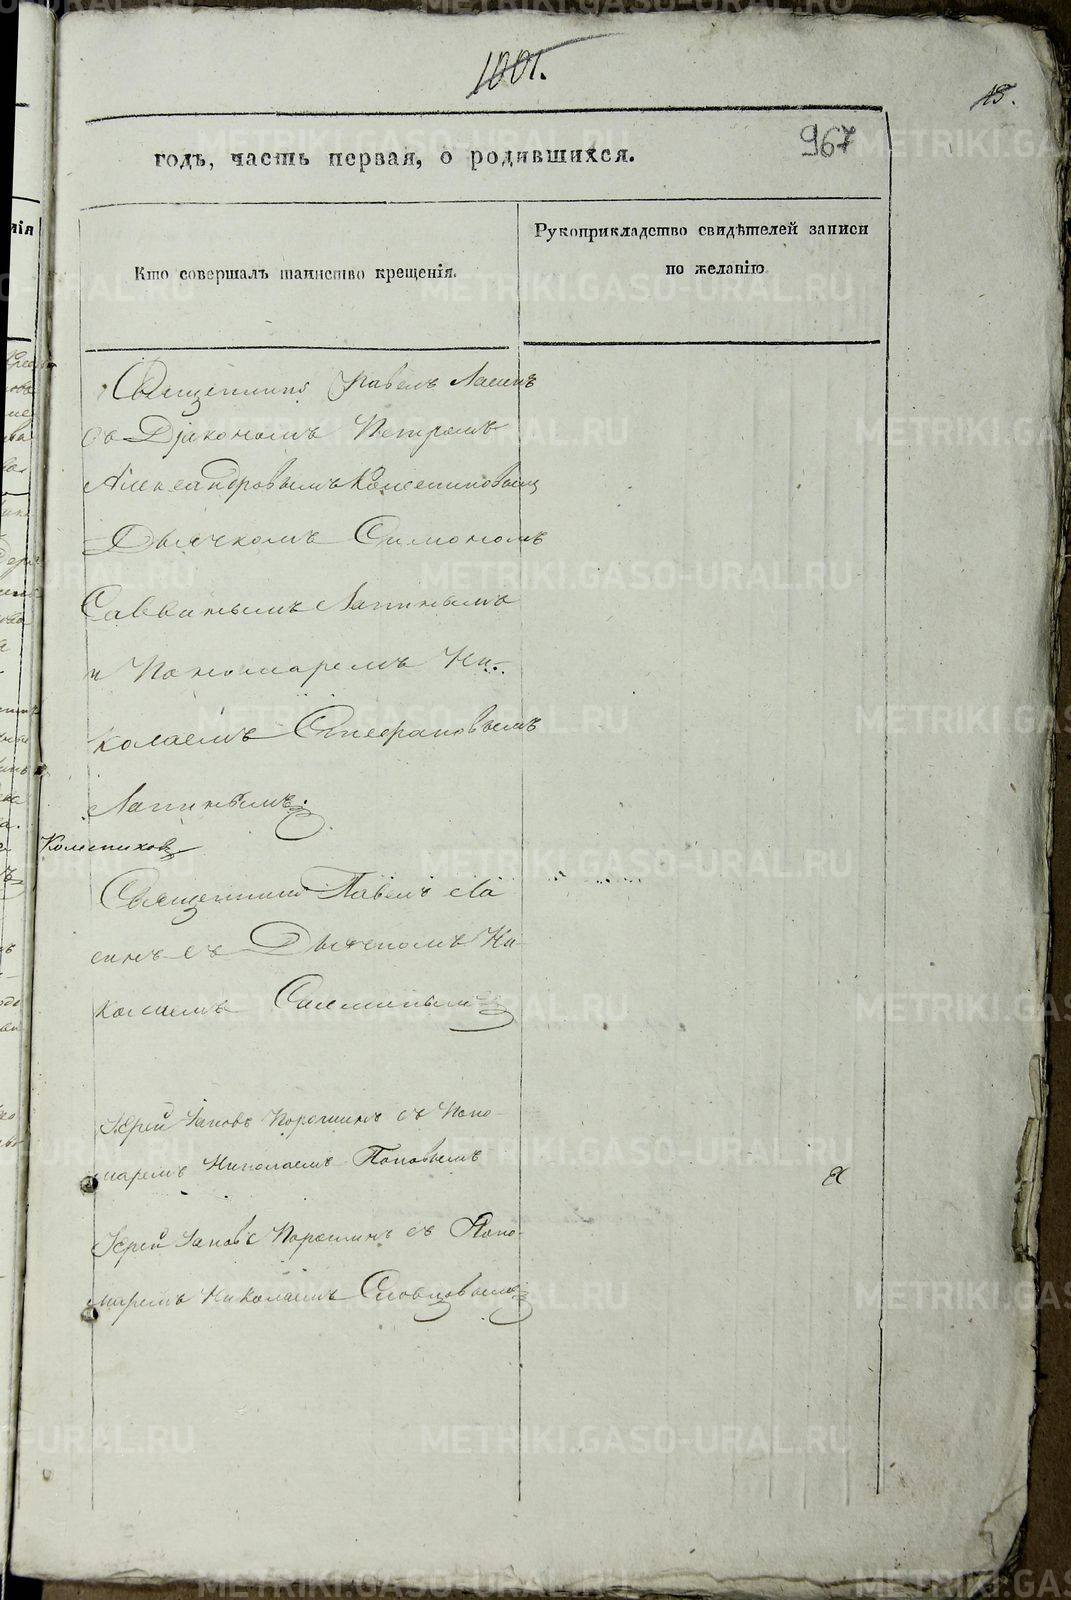 1001.
18.
967
годъ, часть первая, о родившихся.
Кто совершалъ таинство крещенія.
Рукоприкладство свидѣтелей записи
по желанію
Священникъ Павелъ Ласинъ
съ Діакономъ Петромъ
Александровымъ
Дьячкомъ Симономъ
Саввинымъ Лапинымъ
и Пономаремъ Ни-
колаемъ Стефановымъ
Лапинымъ.
Священникъ Павелъ Ла
синъ съ Дьячкомъ Ни-
колаемъ
Іерей Іаковъ Порошинъ съ Поно-
маремъ Николаемъ Поповымъ
Іерей Іаковъ Порошинъ съ Поно-
маремъ Николаемъ Словцовымъ
METRIKI.GASO-URAL.RU